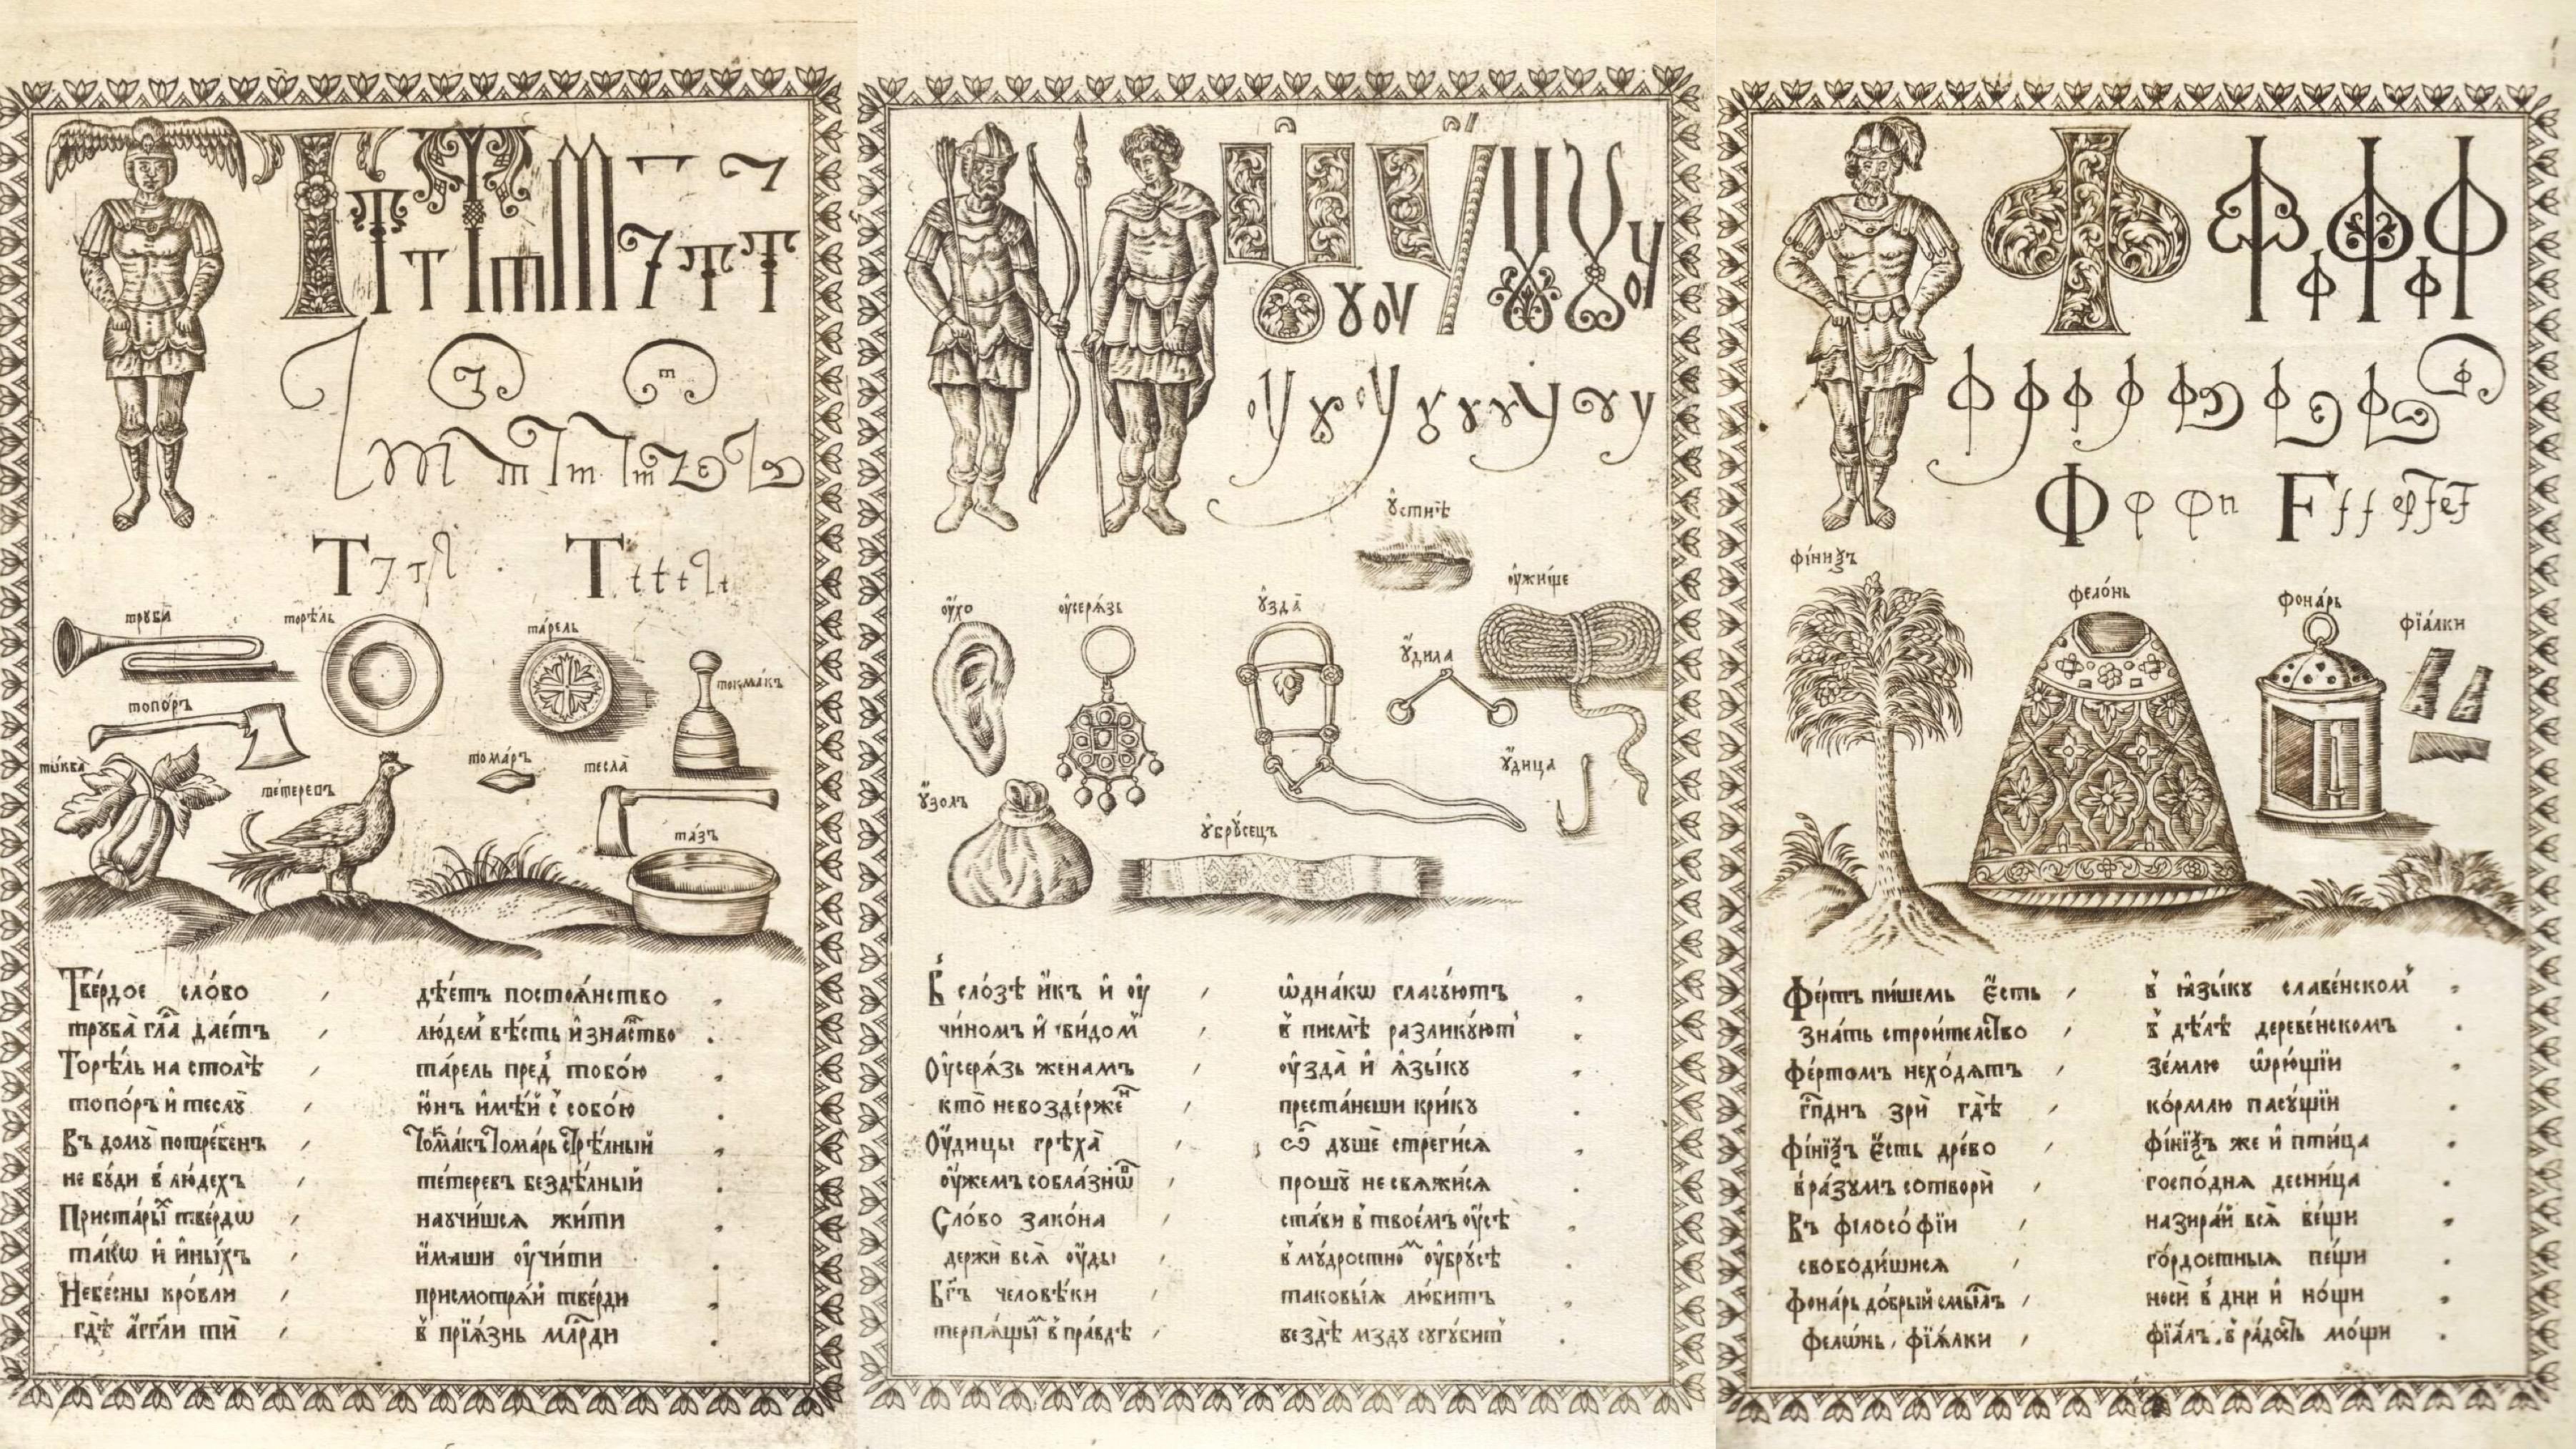 Т т
Т t t t t
трꙋба̀
торѣ́ль
та́рель
токма́къ
топо́ръ
ты́ква
те́теревъ
тома́ръ
тесла̀
та́зъ
Тве́рдое сло́во , дѣ́етъ постоѧ́нство .
трꙋба̀ гла̑ дае́тъ , люде́м вѣ́сть и҆ зна́ство .
Торѣ́ль на столѣ̀ , та́рель пред̾ тобо́ю .
топо́ръ и҆ теслꙋ̀ , ю҆́нъ и҆мѣ́й с̾ собо́ю .
Въ домꙋ̀ потре́бенъ , То́макъ Тома́рь Стрѣ́лный .
не бꙋ́ди в̾ лю́дехъ , те́теревъ бездѣ́лный .
Приста́рый тве́рдѡ , наꙋчи́шсѧ жи́ти .
та́кѡ и҆ и҆ны́хъ , и҆́маши ᲂу҆чи́ти .
Небе́сны кро́вли , присмотрѧ́й тве́рди .
гдѣ̀ а҆́гг҃ли ти̑ , в̾ прїѧ́знь млрди
ᲂу҆стнѣ̀
ᲂу҆́хо
ᲂу҆серѧ́зь
ᲂу҆зда̀
ᲂу҆́жище
ᲂу҆дила
ᲂу҆́золъ
ᲂу҆́дица
ᲂу҆брꙋ́сецъ
В̾ сло́зѣ и҆́къ и҆ ᲂу҆ , ѡ҆дна́кѡ гласꙋ́ютъ .
чи́номъ и҆ ви́дом , в̾ писмѣ̀ разликꙋ́ют .
Оу҆серѧ́зь жена́мъ , ᲂу҆зда̀ и҆ ѧ҆зы́кꙋ .
кто̀ невозде́ржен , преста́неши кри́кꙋ .
Оу҆́дицы грѣха̀ , ѿ дꙋшѐ стреги́сѧ .
ᲂу҆́жемъ собла́знѡв , прошꙋ̀ не свѧжи́сѧ .
Сло́во зако́на , ста́ви в̾ твое́мъ ᲂу҆́сѣ .
держѝ всѧ̑ ᲂу҆́ды , в̾ мꙋ́дростном ᲂу҆брꙋ́сѣ .
Бг҃ъ человѣ́ки , таковы́ѧ лю́битъ .
терпѧ́щыѧ в̾ пра́вдѣ , вездѣ̀ мздꙋ сꙋгꙋ́бит .
Ф φ φ
F f f
фі́ниѯъ
фело́нь
фона́рь
фїа́лки
Фе́ртъ пи́шемь є҆́сть , в̾ ꙗ҆зы́кꙋ славе́нском .
зна́ть строи́телство , в̾ дѣ́лѣ дереве́нскомъ .
фе́ртомъ нехо́дѧтъ , зе́млю ѡ҆рю́щїи .
гп҃днъ зрѝ гдѣ̀ , ко́рмлю пасꙋ́щїи .
фі́нїѯъ є҆́сть дре́во , фі́нїѯъ же и҆ пти́ца .
в̾ ра́зꙋмъ сотворѝ , госпо́днѧ десни́ца .
Въ філосо́фїи , назира́й всѧ̑ ве́щи .
свободи́шисѧ , го́рдостныѧ пе́щи .
фона́рь до́брый смы́слъ , носѝ в̾ дни и҆ но́щи .
фело́нь , фїѧ́лки , фїа́лъ . в̾ ра́дость мо́щи .